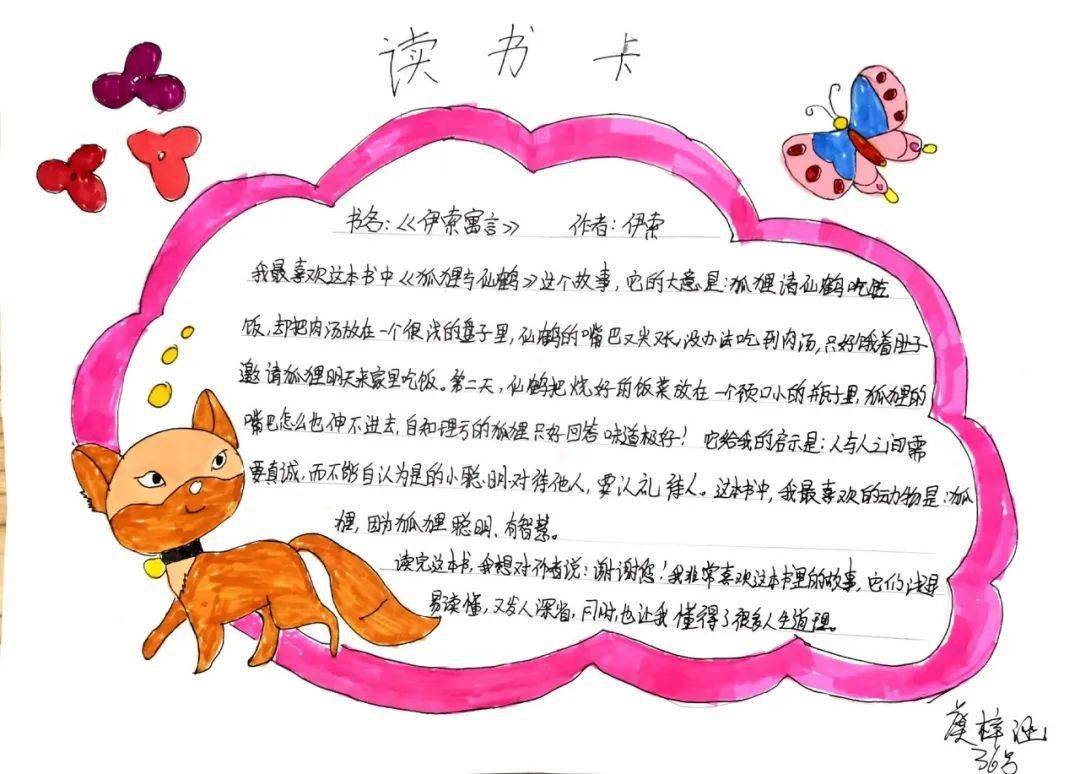 读书卡
书名:《伊索寓言》 作者:伊索
我最喜欢这本书中《狐狸与仙鹤》这个故事,它的大意是:狐狸请仙鹤吃
饭,却把肉汤放在一个很浅的盘子里,仙鹤的嘴巴又尖又长,没办法吃到肉汤,只好饿着肚子
邀请狐狸明天来家里吃饭。第二天,仙鹤把烧好的饭菜放在一个颈口小的瓶子里,狐狸的
嘴巴怎么也伸不进去,自知理亏的狐狸只好回答味道极好!它给我的启示是:人与人之间需
要真诚,而不能自认为是的小聪明对待他人,要以礼待人。这本书中,我最喜欢的动物是:狐
狸,因为狐狸聪明、有智慧。
读完这本书,我想对作者说:谢谢您!我非常喜欢这本书里的故事,它们浅显
易读懂,又发人深省,同时,也让我懂得了很多人生道理。
梓涵
36号